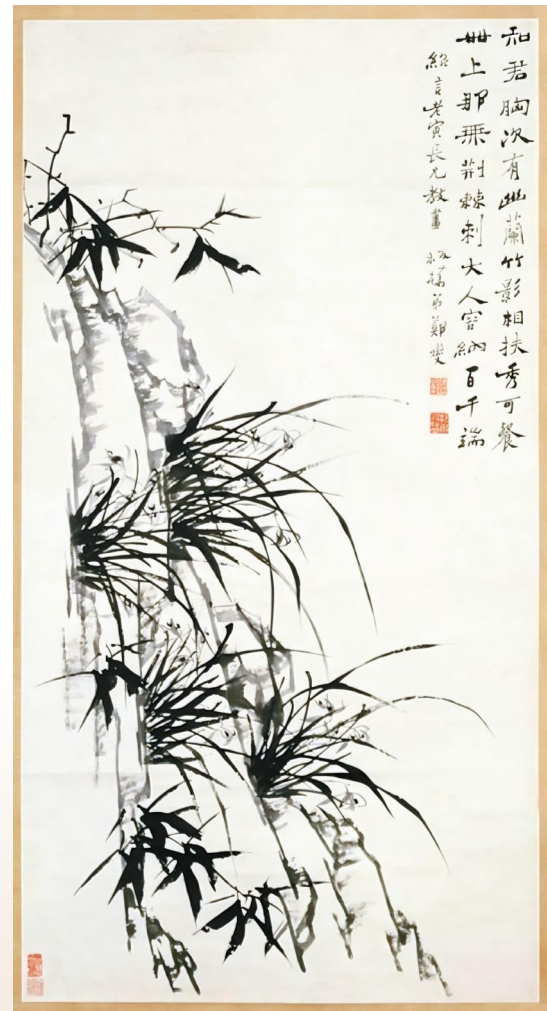 知君胸次有幽蘭竹影相扶秀可餐
世上那無荆棘刺大人容納百千端
紹言老寅長兄教畫 板橋弟鄭燮